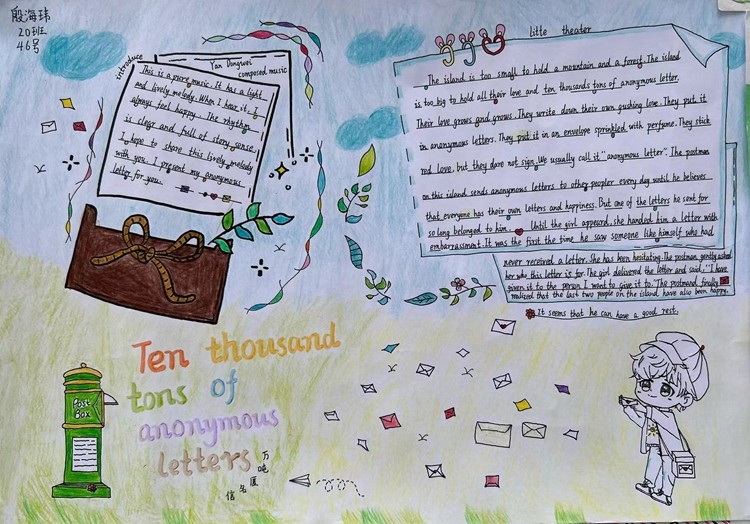 殷海玮
20班
46号
introduce
Yan Dongwei
composed music
This is a pure music. It has a light
and lively melody. When I hear it, I
always feel happy. The rhythm
is clear and full of story sense.
I hope to share this lively melody
with you. I present my anonymous
letter for you.
litte theater
The island is too small to hold a mountain and a forest. The island
is too big to hold all their love and ten thousands tons of anonymous letter.
Their love grows and grows. They write down their own gushing love. They put it
in anonymous letters. They put it in an envelope sprinkled with perfume. They stick
red love, but they dare not sign. We usually call it "anonymous letter". The postman
on this island sends anonymous letters to other peopler every day until he believes
that everyone has their own letters and happiness. But one of the letters he sent for
so long belonged to him. Until the girl appeard, she handed him a letter with
embarrassment. It was the first the time he saw someone like himself who had
never received a letter. She has been hesitating. The postman gently asked
her who this letter is for. The girl delivered the letter and said, "I have
given it to the person I want to give it to." The postmand finally
realized that the last two people on the island have also been happy.
It seems that he can have a good rest.
Ten thousand
tons of
anonymous
letters
万吨
匿名信
Post
Box